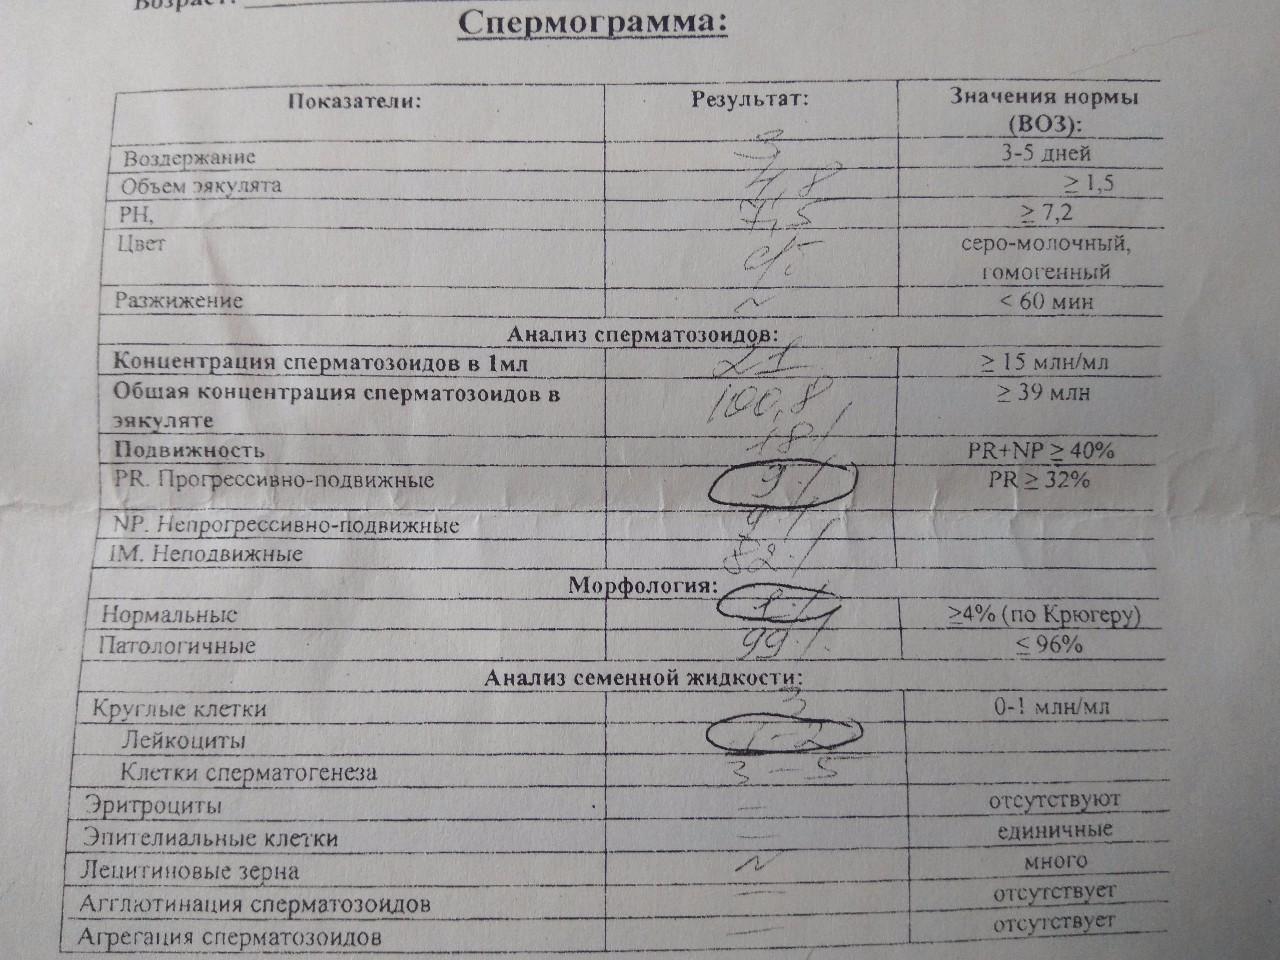 Возраст:
Спермограмма:
Показатели: Результат: Значения нормы
(ВОЗ):
Воздержание 3 3-5 дней
Объем эякулята 4,8 ≥ 1,5
PH, 7,5 ≥ 7,2
Цвет серо-молочный,
гомогенный
Разжижение ~ < 60 мин
Анализ сперматозоидов:
Концентрация сперматозоидов в 1мл 21 ≥ 15 млн/мл
Общая концентрация сперматозоидов в 100,8 ≥ 39 млн
эякуляте
Подвижность 18% PR+NP ≥ 40%
PR. Прогрессивно-подвижные 9% PR ≥ 32%
NP. Непрогрессивно-подвижные 9%
IM. Неподвижные 82%
Морфология:
Нормальные 1% ≥4% (по Крюгеру)
Патологичные 99% ≤ 96%
Анализ семенной жидкости:
Круглые клетки 3 0-1 млн/мл
Лейкоциты 1-2
Клетки сперматогенеза 3 - 5
Эритроциты — отсутствуют
Эпителиальные клетки — единичные
Лецитиновые зерна ~ много
Агглютинация сперматозоидов — отсутствует
Агрегация сперматозоидов — отсутствует